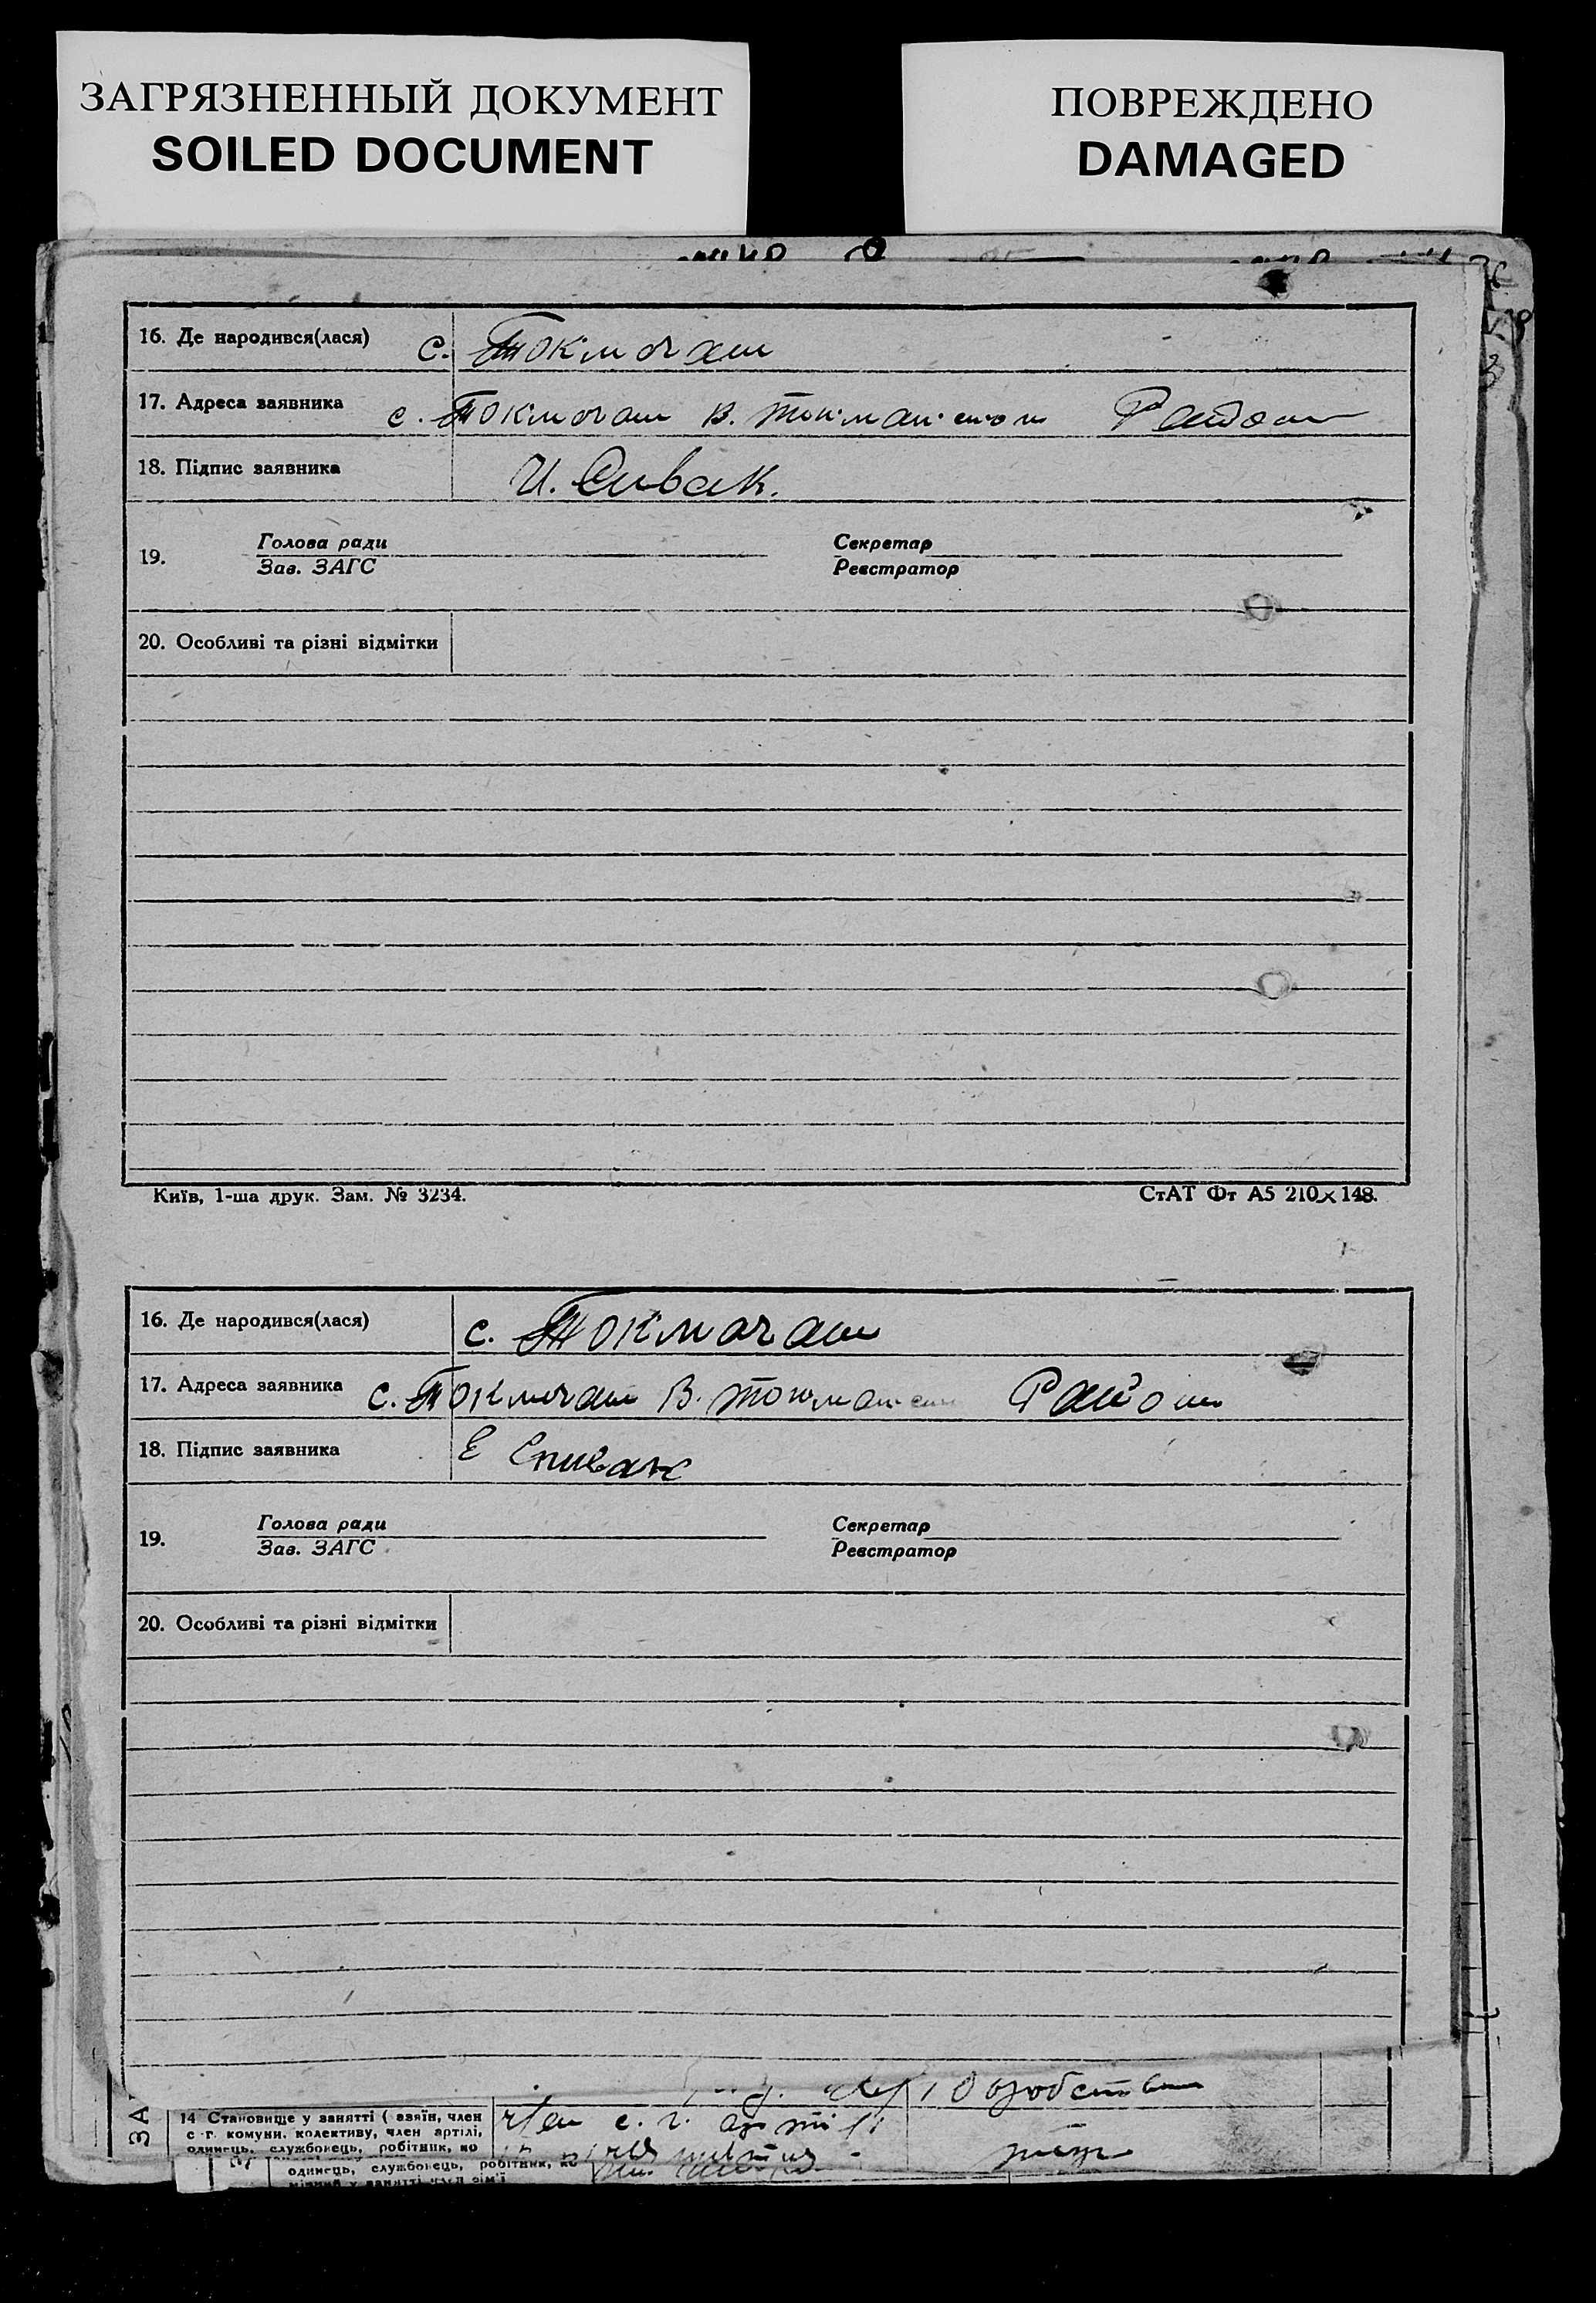 ЗАГРЯЗНЕННЫЙ ДОКУМЕНТ
SOILED DOCUMENT
ПОВРЕЖДЕНО
DAMAGED
16. Де народився(лася) с. Токмочаш
17. Адреса заявника с. Токмочаш В. Район
18. Підпис заявника И. Сивак.
19. Голова ради Секретар
Зав. ЗАГС Реєстратор
20. Особливі та різні відмітки
Київ, 1-ша друк. Зам. № 3234. СтАТ Фт А5 210×148.
16. Де народився(лася) с. Токмочаш
17. Адреса заявника с. Токмочаш В. Район
18. Підпис заявника Е Спивак
19. Голова ради Секретар
Зав. ЗАГС Реєстратор
20. Особливі та різні відмітки
ЗА
14 Становище у занятті (
член
с.-г. комуни. колективу, член артілі,
одинець, службовець, робітник, по
член с. г. артілі
одинець, службовець, робітник,